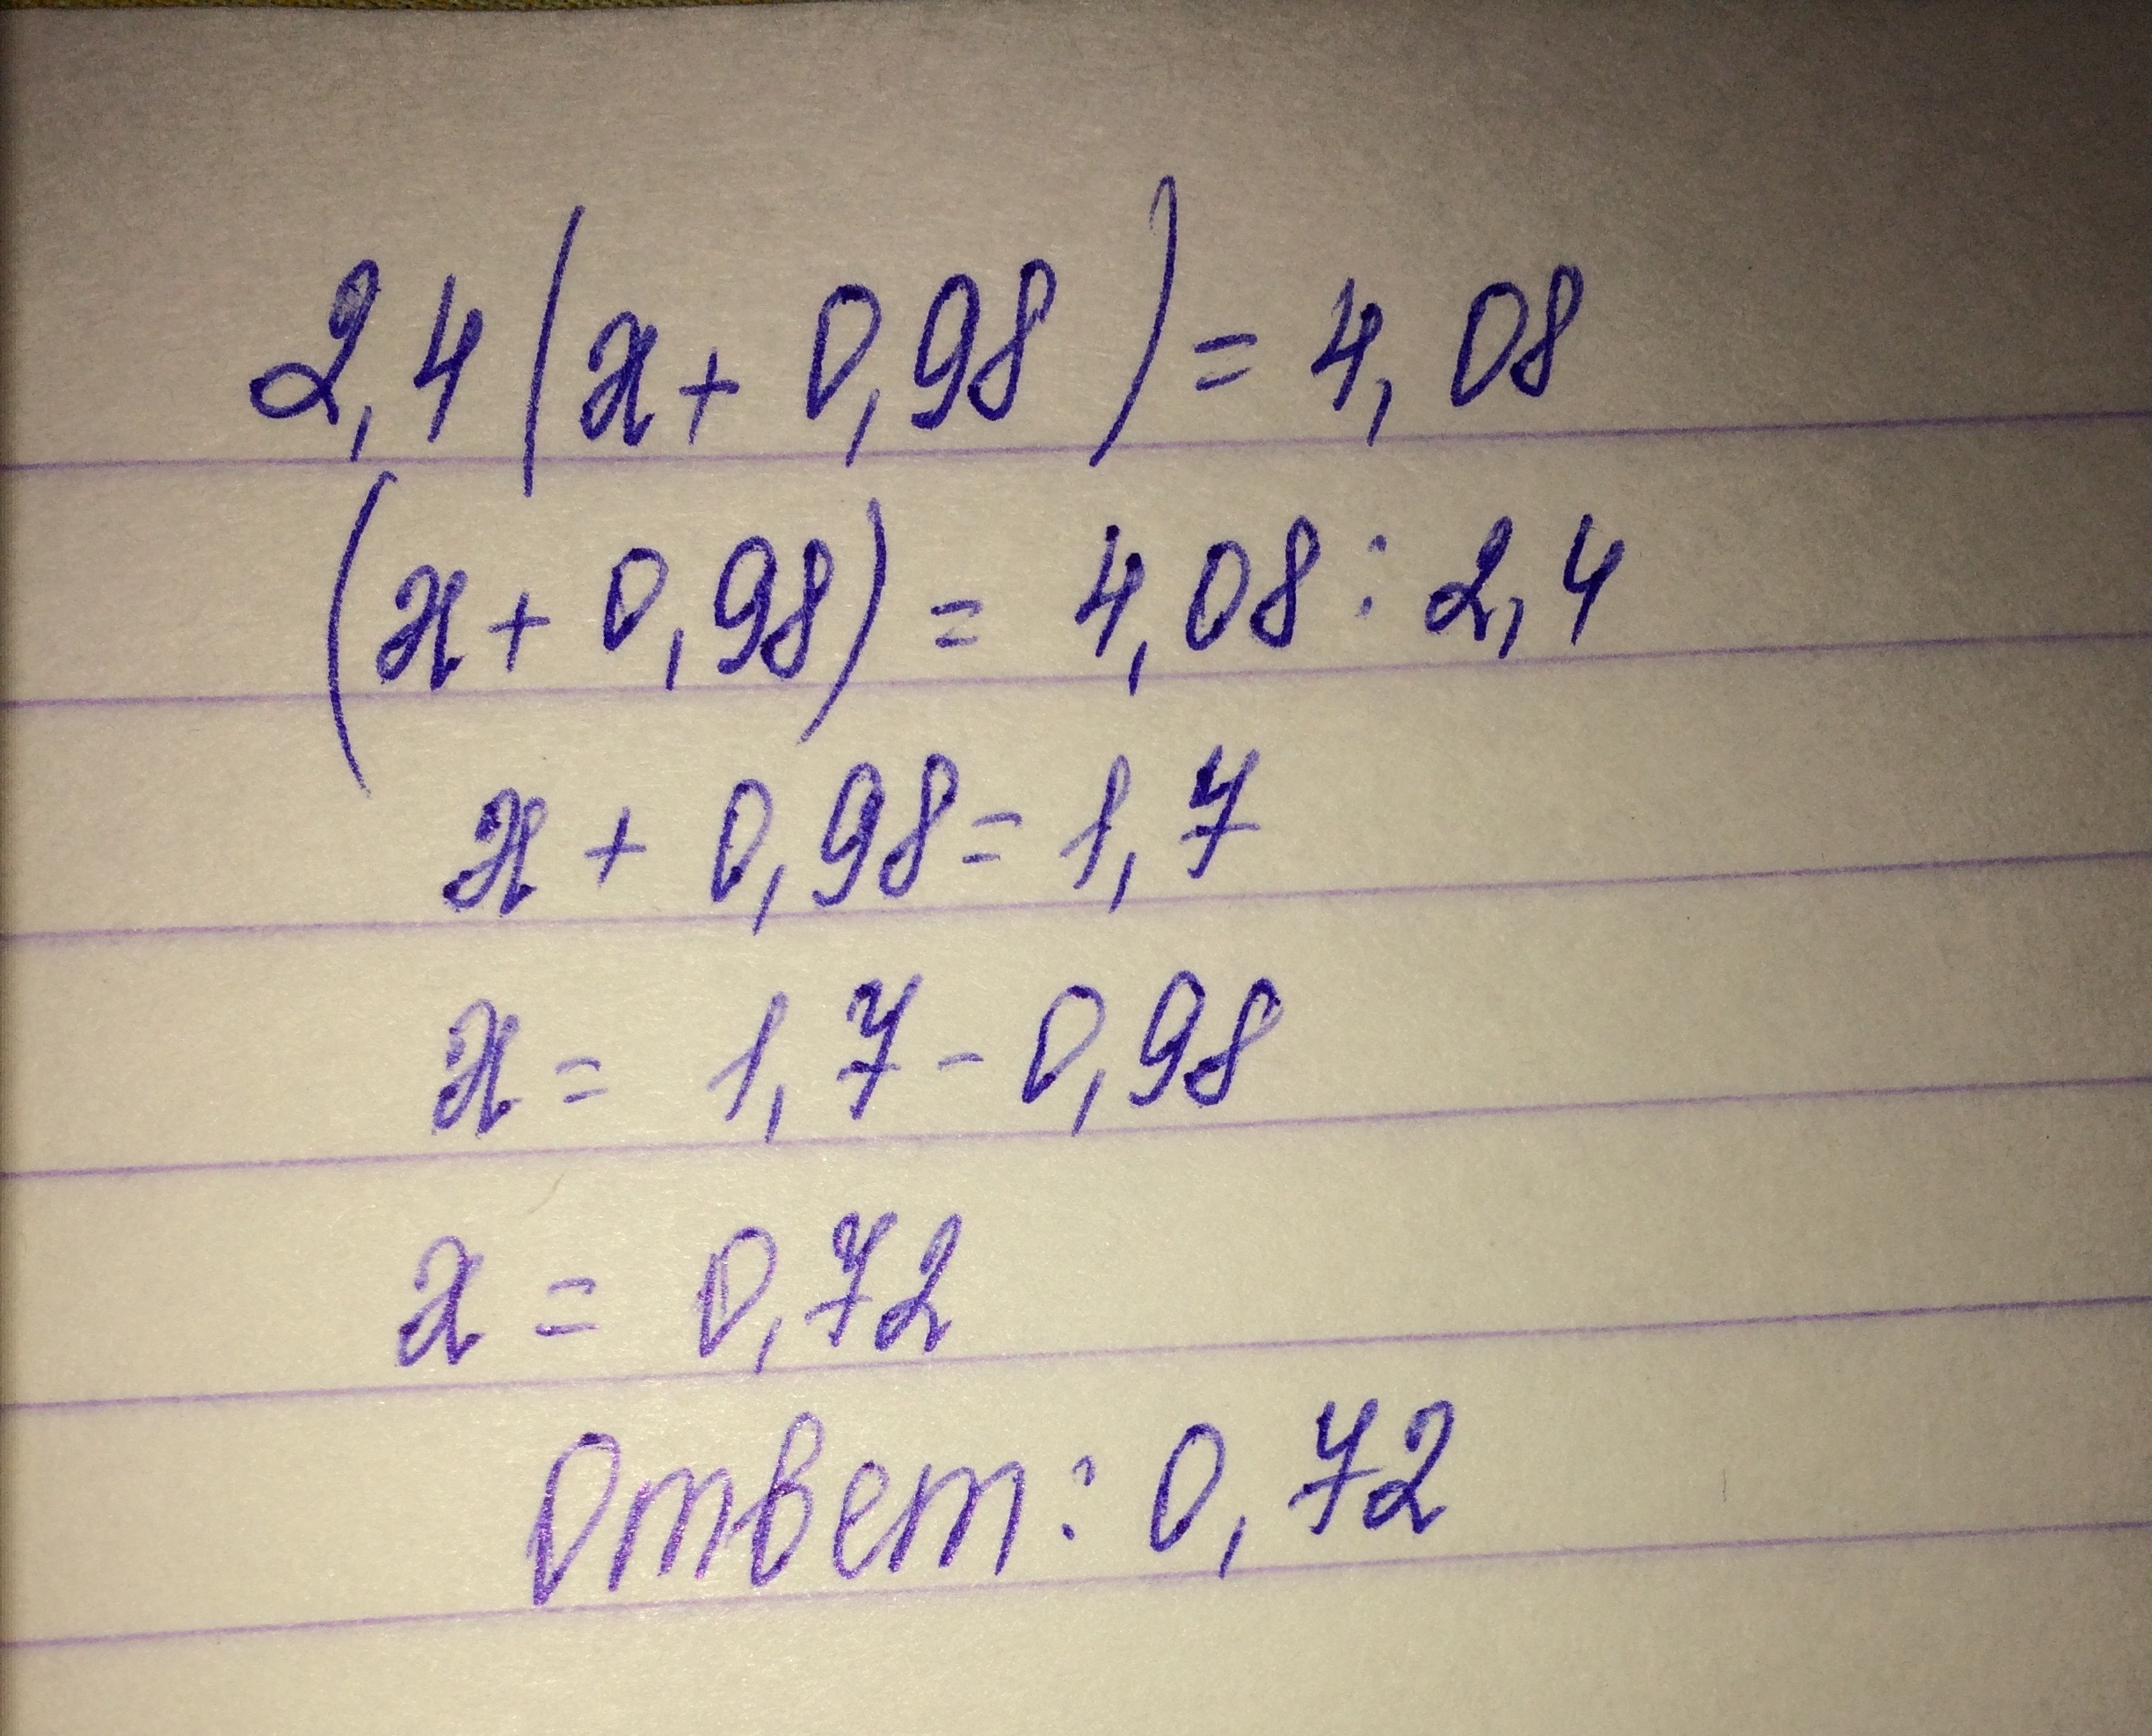 2,4(x+0,98)=4,08
(x+0,98)=4,08:2,4
x+0,98=1,7
x=1,7-0,98
x=0,72
Ответ: 0,72